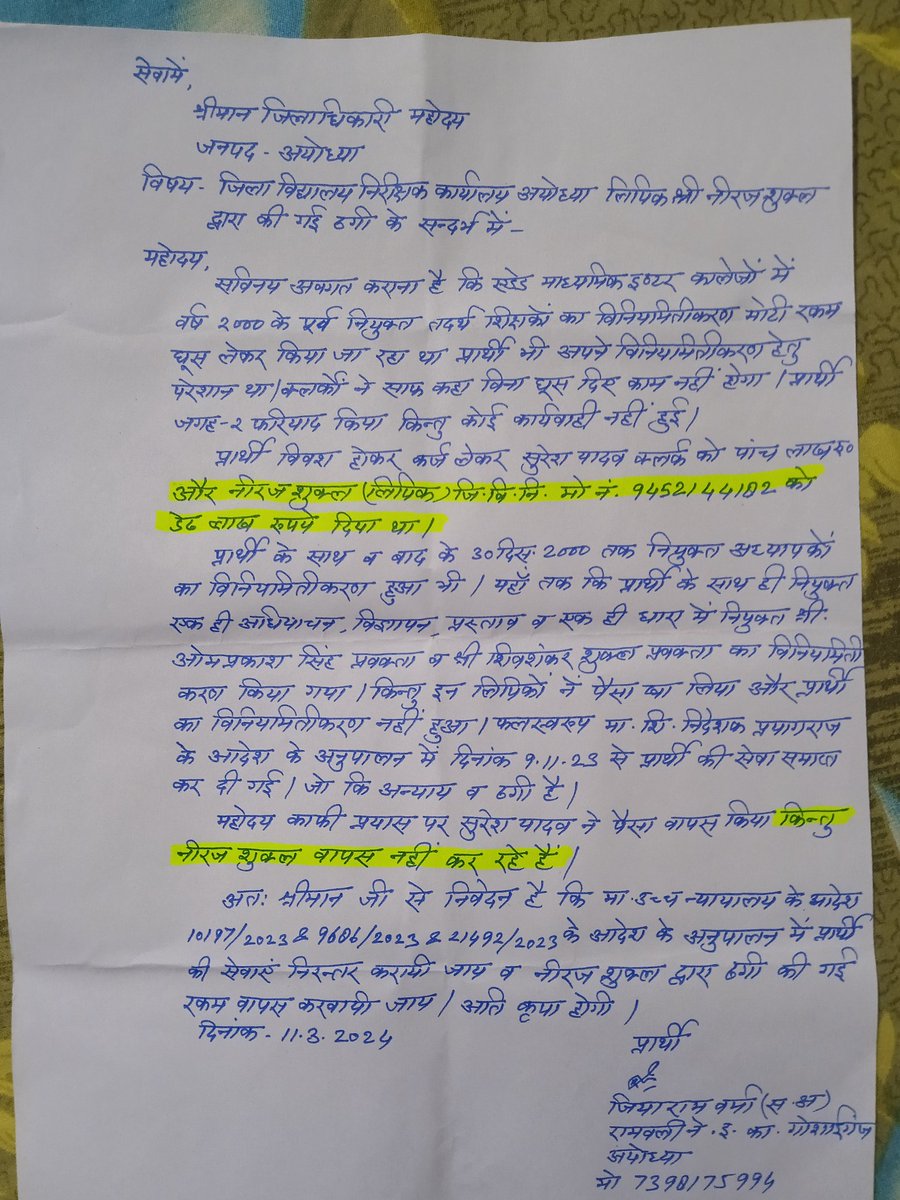 सेवामें,
श्रीमान जिलाधिकारी महोदय
जनपद - अयोध्या
विषय - जिला विद्यालय निरीक्षक कार्यालय अयोध्या लिपिक श्री नीरज शुक्ल
द्वारा की गई ठगी के सन्दर्भ में -
महोदय,
सविनय अवगत कराना है कि एडेड माध्यमिक इण्टर कालेजों में
वर्ष 2000 के पूर्व नियुक्त तदर्थ शिक्षकों का विनियमितीकरण मोटी रकम
घूस लेकर किया जा रहा था प्रार्थी भी अपने विनियमितीकरण हेतु
परेशान था। क्लर्कों ने साफ कहा बिना घूस दिए काम नहीं होगा। प्रार्थी
जगह-२ फरियाद किया किन्तु कोई कार्यवाही नहीं हुई।
प्रार्थी विवश होकर कर्ज लेकर सुरेश यादव क्लर्क को पांच लाख रु०
और नीरज शुक्ल (लिपिक) जि.वि.नि. मो नं. 9452144182 को
डेढ लाख रुपये दिया था।
प्रार्थी के साथ व बाद के 30 दिस. 2000 तक नियुक्त अध्यापकों
का विनियमितीकरण हुआ भी। यहाँ तक कि प्रार्थी के साथ ही नियुक्त
एक ही अधियाचन, विज्ञापन, प्रस्ताव व एक ही धारा में नियुक्त श्री.
ओमप्रकाश सिंह प्रवक्ता व श्री शिवशंकर शुक्ल प्रवक्ता का विनियमिती
करण किया गया। किन्तु इन लिपिकों नें पैसा खा लिया और प्रार्थी
का विनियमितीकरण नहीं हुआ। फलस्वरूप मा. शि. निदेशक प्रयागराज
के आदेश के अनुपालन में दिनांक 9.11.23 से प्रार्थी की सेवा समाप्त
कर दी गई। जो कि अन्याय व ठगी है।
महोदय काफी प्रयास पर सुरेश यादव ने पैसा वापस किया किन्तु
नीरज शुक्ल वापस नहीं कर रहे हैं।
अतः श्रीमान जी से निवेदन है कि मा. उच्च न्यायालय के आदेश
10197/2023 & 9686/2023 & 21492/2023 के आदेश के अनुपालन में प्रार्थी
की सेवाएं निरन्तर करायी जाय व नीरज शुक्ल द्वारा ठगी की गई
रकम वापस करवायी जाय। अति कृपा होगी।
दिनांक - 11.3.2024
प्रार्थी
जियाराम वर्मा (स.अ)
रामवली ने. इ. का. गोशाईगंज
अयोध्या
मो 7398175994